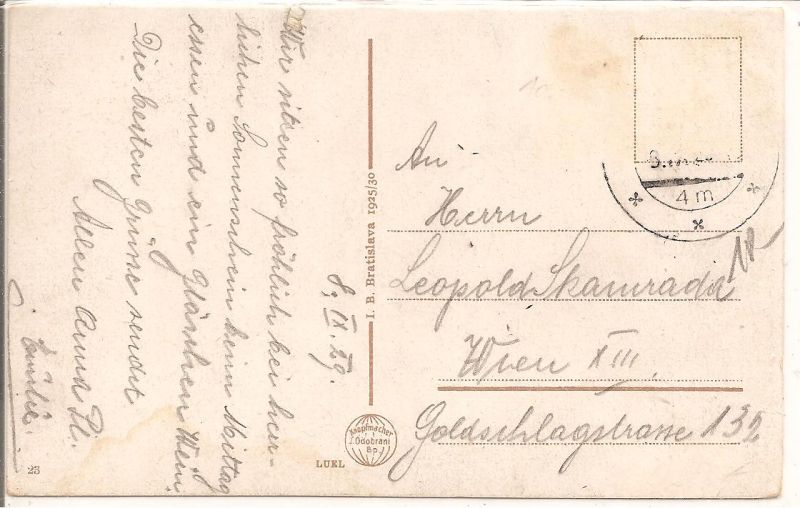 8. IX. 29.
Wir sitzen so fröhlich bei herr-
lichen Sonnenschein beim Mittag
essen und ein Gläschen Wein.
Die besten Grüsse sendet
Allen Anna Pl.
Emilie
I. B. Bratislava 1925/30
An
Herrn
Leopold Skamrada
Wien XIII.
Goldschlagstrasse 132
4 m
Knöpfmacher
J. Odobrani
Bp.
LUEL
23